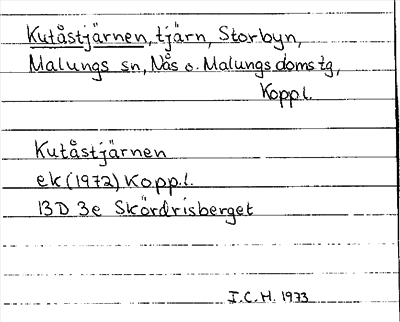 Kutåstjärnen, tjärn, Storbyn,
Malungs sn, Nås o. Malungs domstg,
Koppl.
Kutåstjärnen
ek (1972) Koppl.
13D 3e Skördrisberget
I.C.H. 1973